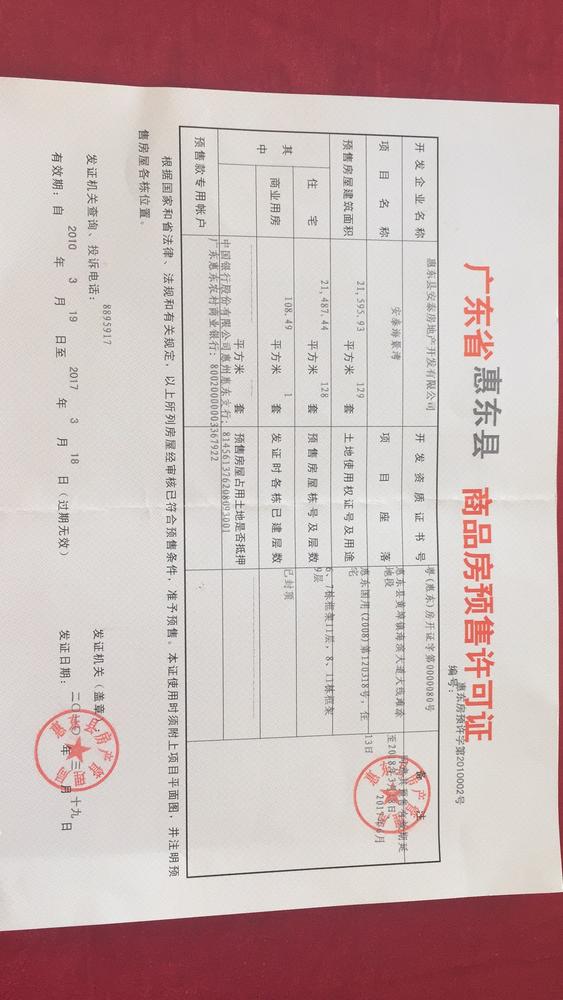 广东省 惠东县 商品房预售许可证
编号: 惠东房预许字第2010002号
开发企业名称 惠东县安泰房地产开发有限公司 开发资质证书号 粤(惠东)房开证字第0000080号 备注
项目名称 安泰海景湾 项目座落 惠东县黄埠镇海滨大道大线滩杂地段
预售房屋建筑面积 21,595.93 平方米 129 套 土地使用权证号及用途 惠东国用(2008)第120318号, 住宅
其中 住宅 21,487.44 平方米 128 套 预售房屋栋号及层数 6、7栋框架11层, 8、11栋框架9层
商业用房 108.49 平方米 1 套 发证时各栋已建层数 已封顶
平方米 套 预售房屋占用土地是否抵押
预售款专用帐户 中国银行股份有限公司惠州惠东支行: 814561376208093001
广东惠东农村商业银行: 80020000003367922
至2018年3月18日
2017年6月
13日
根据国家和省法律、法规和有关规定, 以上所列房屋经审核已符合预售条件, 准予预售。本证使用时须附上项目平面图, 并注明预
售房屋各栋位置。
发证机关查询、投诉电话: 8895917 发证机关(盖章):
有效期: 自 2010 年 3 月 19 日至 2017 年 3 月 18 日(过期无效) 发证日期: 二〇一〇年 三 月 十九 日